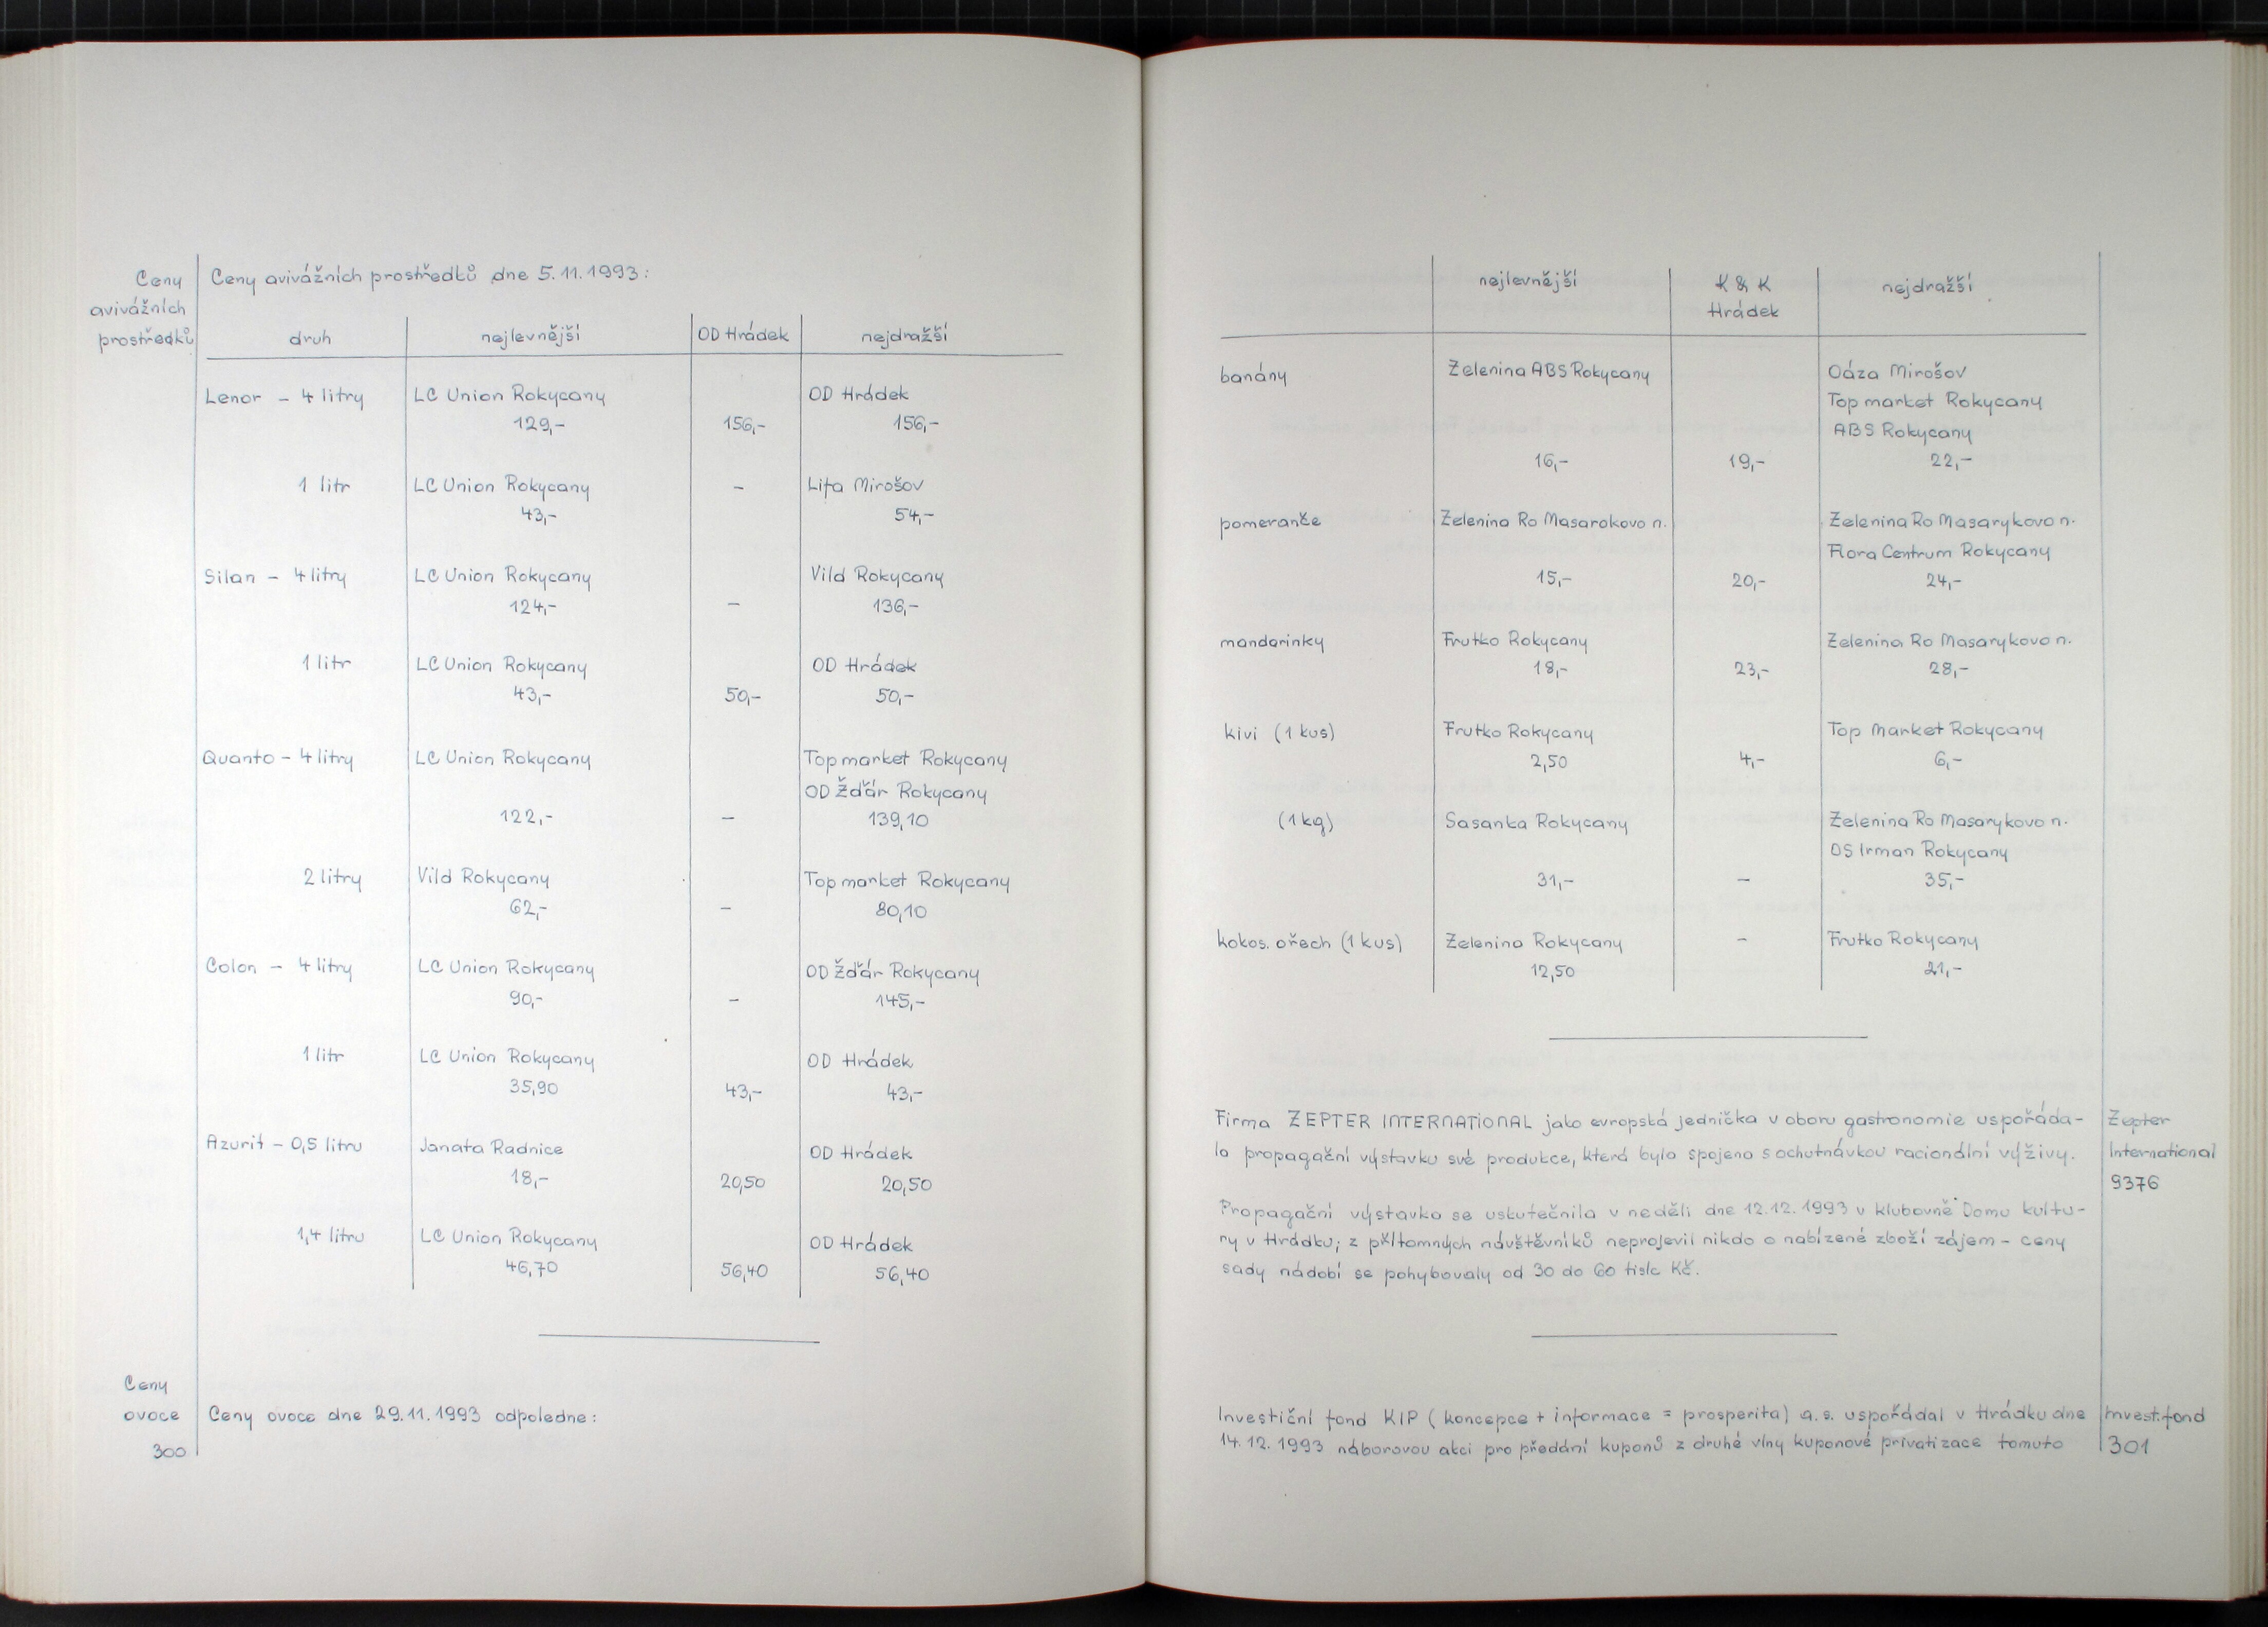 Ceny
avivážních
prostředků
Ceny avivážních prostředků dne 5.11.1993:
druh nejlevnější OD Hrádek nejdražší
Lenor - 4 litry LC Union Rokycany OD Hrádek
129,- 156,- 156,-
1 litr LC Union Rokycany - Lifa Mirošov
43,- 54,-
Silan - 4 litry LC Union Rokycany Vild Rokycany
124,- - 136,-
1 litr LC Union Rokycany OD Hrádek
43,- 50,- 50,-
Quanto - 4 litry LC Union Rokycany Top market Rokycany
OD Žďár Rokycany
122,- - 139,10
2 litry Vild Rokycany Top market Rokycany
62,- - 80,10
Colon - 4 litry LC Union Rokycany OD Žďár Rokycany
90,- - 145,-
1 litr LC Union Rokycany OD Hrádek
35,90 43,- 43,-
Azurit - 0,5 litru Janata Radnice OD Hrádek
18,- 20,50 20,50
1,4 litru LC Union Rokycany OD Hrádek
46,70 56,40 56,40
Ceny
ovoce Ceny ovoce dne 29.11.1993 odpoledne:
300
nejlevnější K & K nejdražší
Hrádek
banány Zelenina ABS Rokycany Oáza Mirošov
Top market Rokycany
ABS Rokycany
16,- 19,- 22,-
pomeranče Zelenina Ro Masarokovo n. Zelenina Ro Masarykovo n.
Flora Centrum Rokycany
15,- 20,- 24,-
mandarinky Frutko Rokycany Zelenina Ro Masarykovo n.
18,- 23,- 28,-
kivi (1 kus) Frutko Rokycany Top market Rokycany
2,50 4,- 6,-
(1 kg) Sasanka Rokycany Zelenina Ro Masarykovo n.
OS Irman Rokycany
31,- - 35,-
kokos. ořech (1 kus) Zelenina Rokycany - Frutko Rokycany
12,50 21,-
Firma ZEPTER INTERNATIONAL jako evropská jednička v oboru gastronomie uspořáda-
la propagační výstavku své produkce, která byla spojena s ochutnávkou racionální výživy.
Propagační výstavka se uskutečnila v neděli dne 12.12.1993 v klubovně Domu kultu-
ry v Hrádku; z přítomných návštěvníků neprojevil nikdo o nabízené zboží zájem - ceny
sady nádobí se pohybovaly od 30 do 60 tisíc Kč.
Zepter
International
9376
Investiční fond KIP (koncepce + informace = prosperita) a.s. uspořádal v Hrádku dne
14.12.1993 náborovou akci pro předání kuponů z druhé vlny kuponové privatizace tomuto
Invest.fond
301